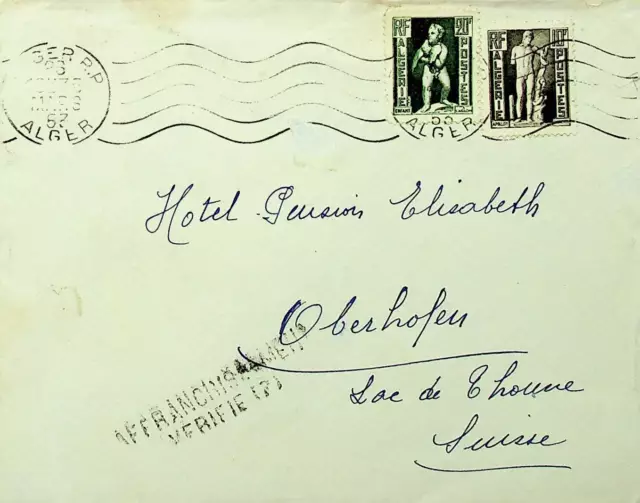 RF 20F
ALGERIE POSTES
ENFANT
RF 10F
ALGERIE POSTES
APOLLON
ALGER R.P
ALGER
ALGER
Hotel Pension Elisabeth
Oberhofen
Lac de Thoune
Suisse
AFFRANCHISSEMENT
VERIFIE (7)